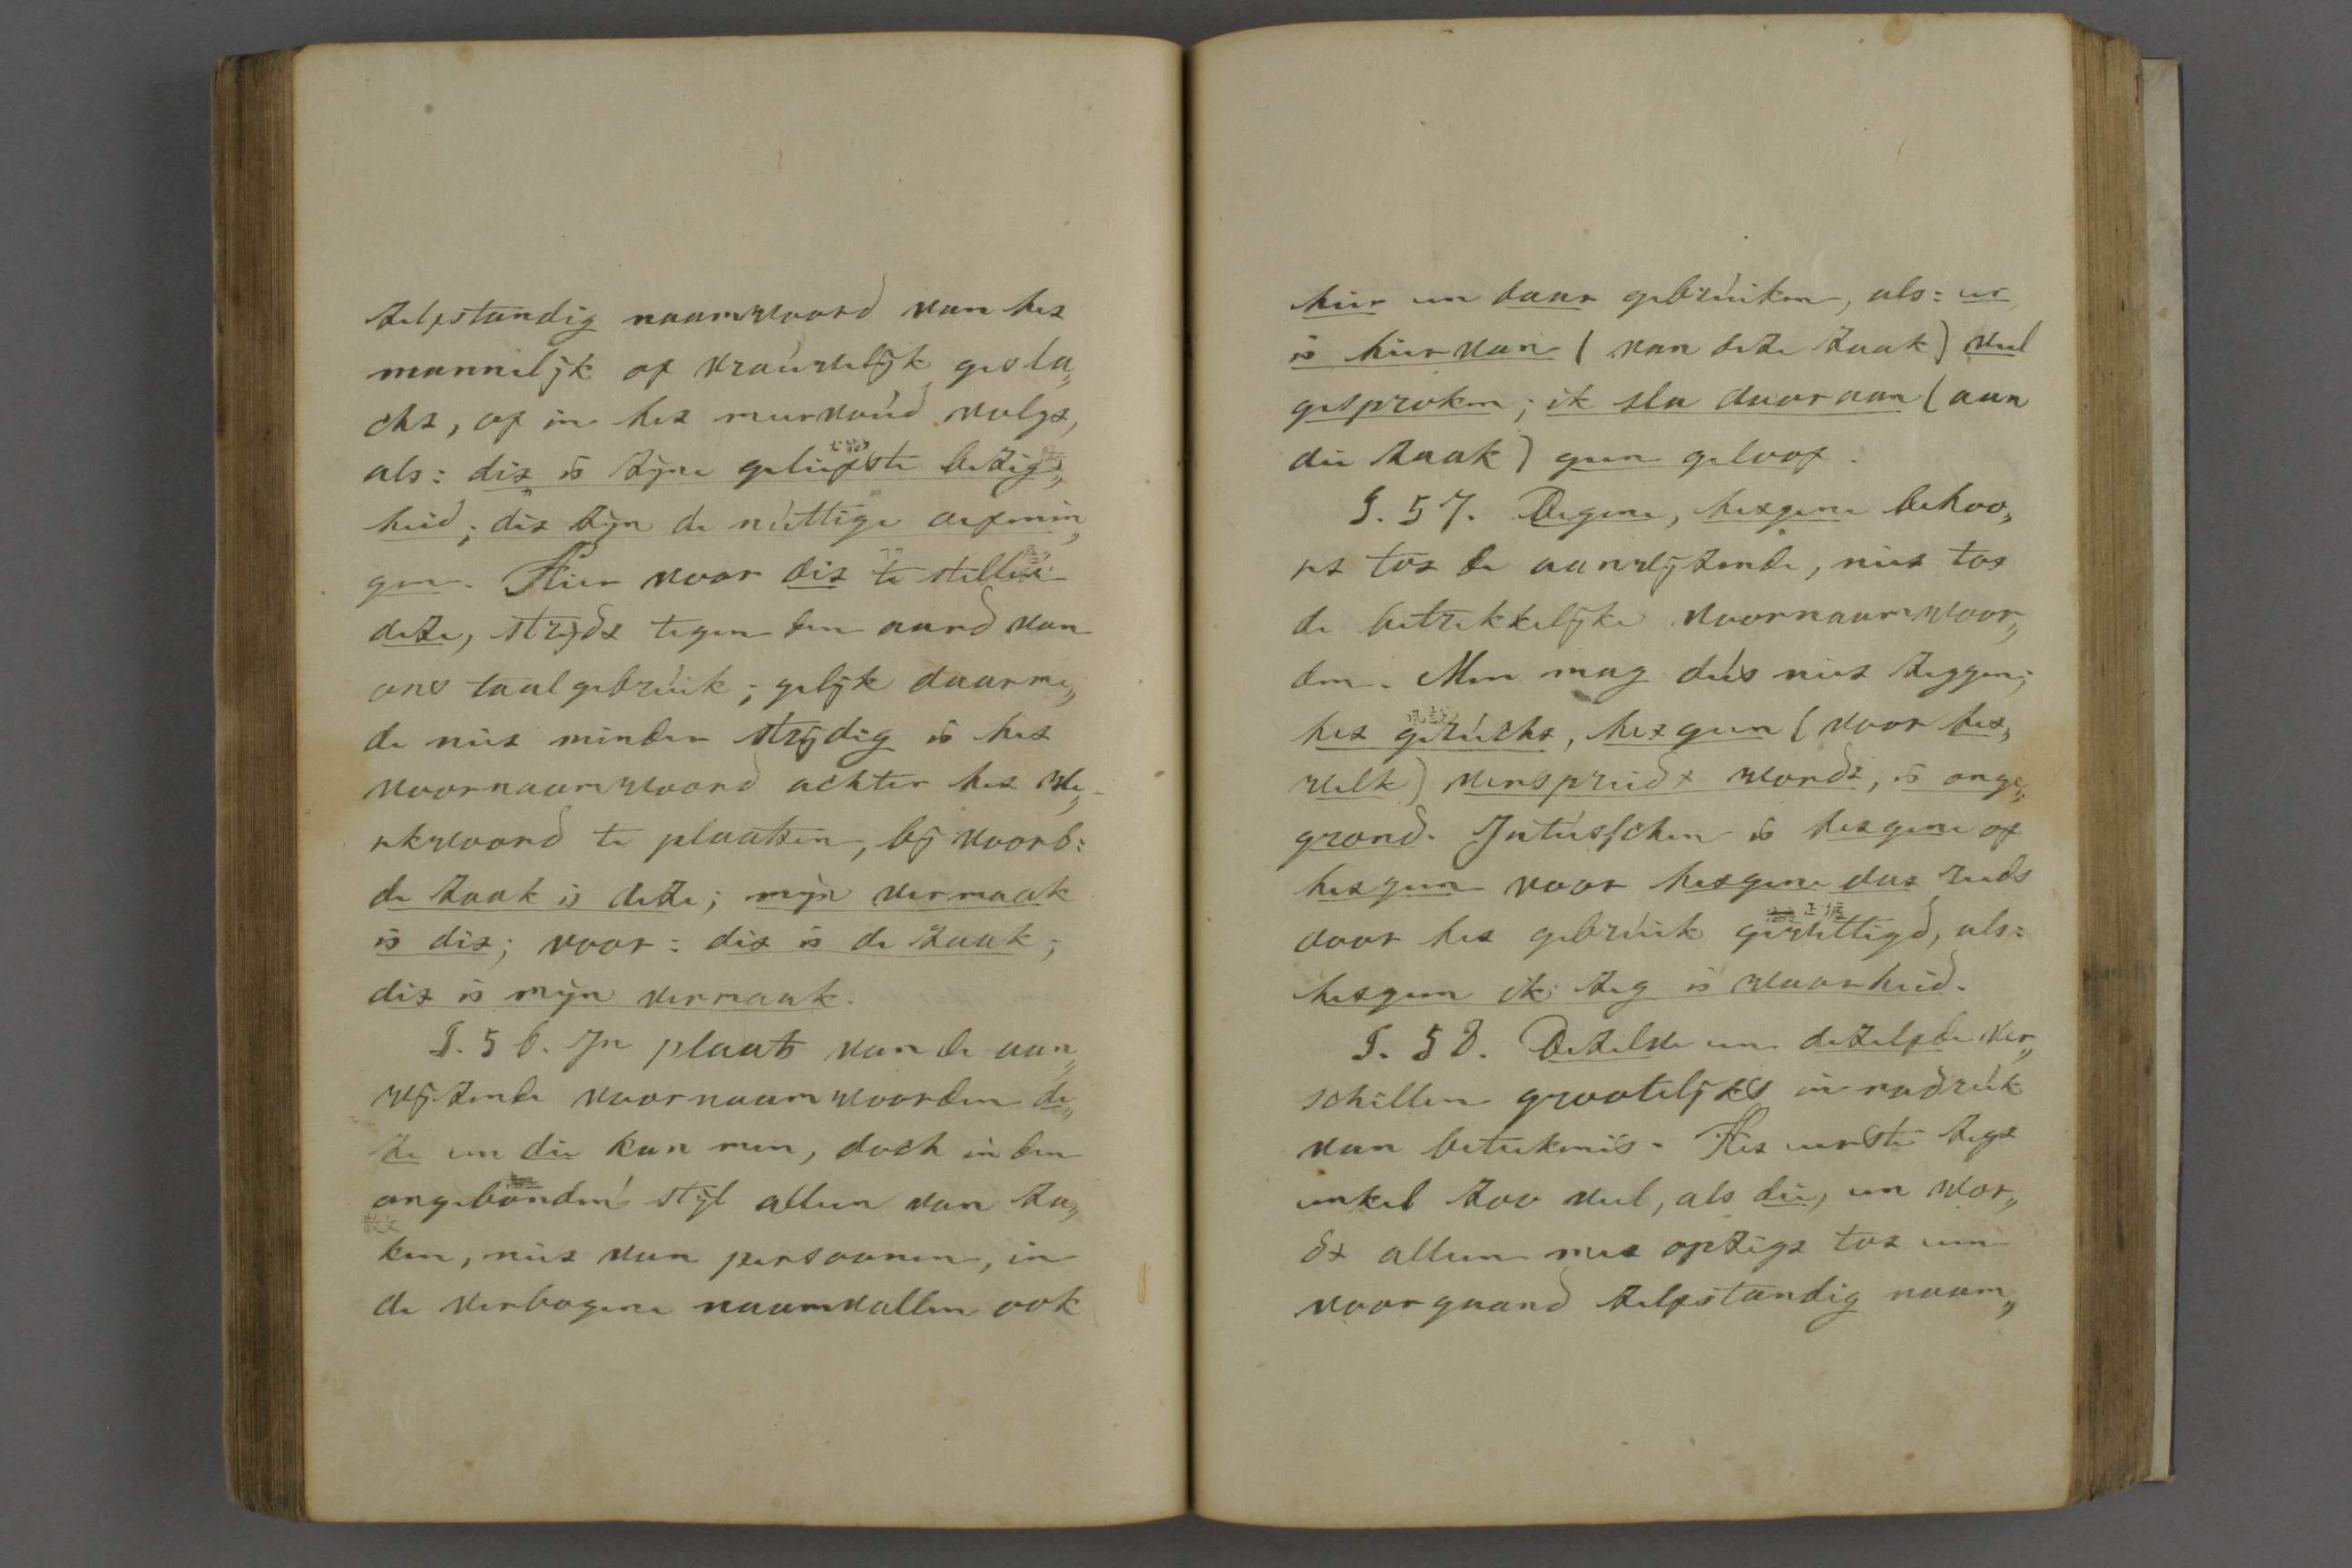 zelfstandig naamwoord van het
mannelijk of vrouwelijk gesla„
cht, of in het meervoud volgt,
als: dit is zijne geliefste bezig„
heid; dit zijn de nuttige oefenin„
gen. Hier voor dit te stellen
deze, strijdt tegen den aard van
ons taalgebruik; gelijk daarme„
de niet minder strijdig is het
voornaamwoord achter het we„
rkwoord te plaatsen, bij voorb:
de zaak is deze; mijn vermaak
is dit; voor: dit is de zaak;
dit is mijn vermaak.
§. 56. In plaats van de aan„
wijzende voornaamwoorden de„
ze en die kan men, doch in den
ongebonden stijl alleen van za„
散文
ken, niet van persoonen, in
de verbogene naamvallen ook
hier en daar gebruiken, als: er
is hier van (van deze zaak) veel
gesproken; ik sla daar aan (aan
die zaak) geen geloof.
§. 57. Degene, hetgene behoo„
rt tot de aanwijzende, niet tot
de betrekkelijke voornaamwoor„
den. Men mag dus niet zeggen;
風説
het gerucht, hetgeen (voor het„
welk) verspreidt wordt, is onge„
grond. Intusschen is hetgene of
hetgeen voor hetgene dat reeds
door het gebruik gewettigd, als:
hetgeen ik zeg is waarheid.
§. 58. Dezelve en dezelfde ver„
schillen grootelijks in nadruk
van beteekenis. Het eerste zegt
enkel zoo veel, als die, en wor„
dt alleen met opzigt tot een
voorgaand zelfstandig naam„